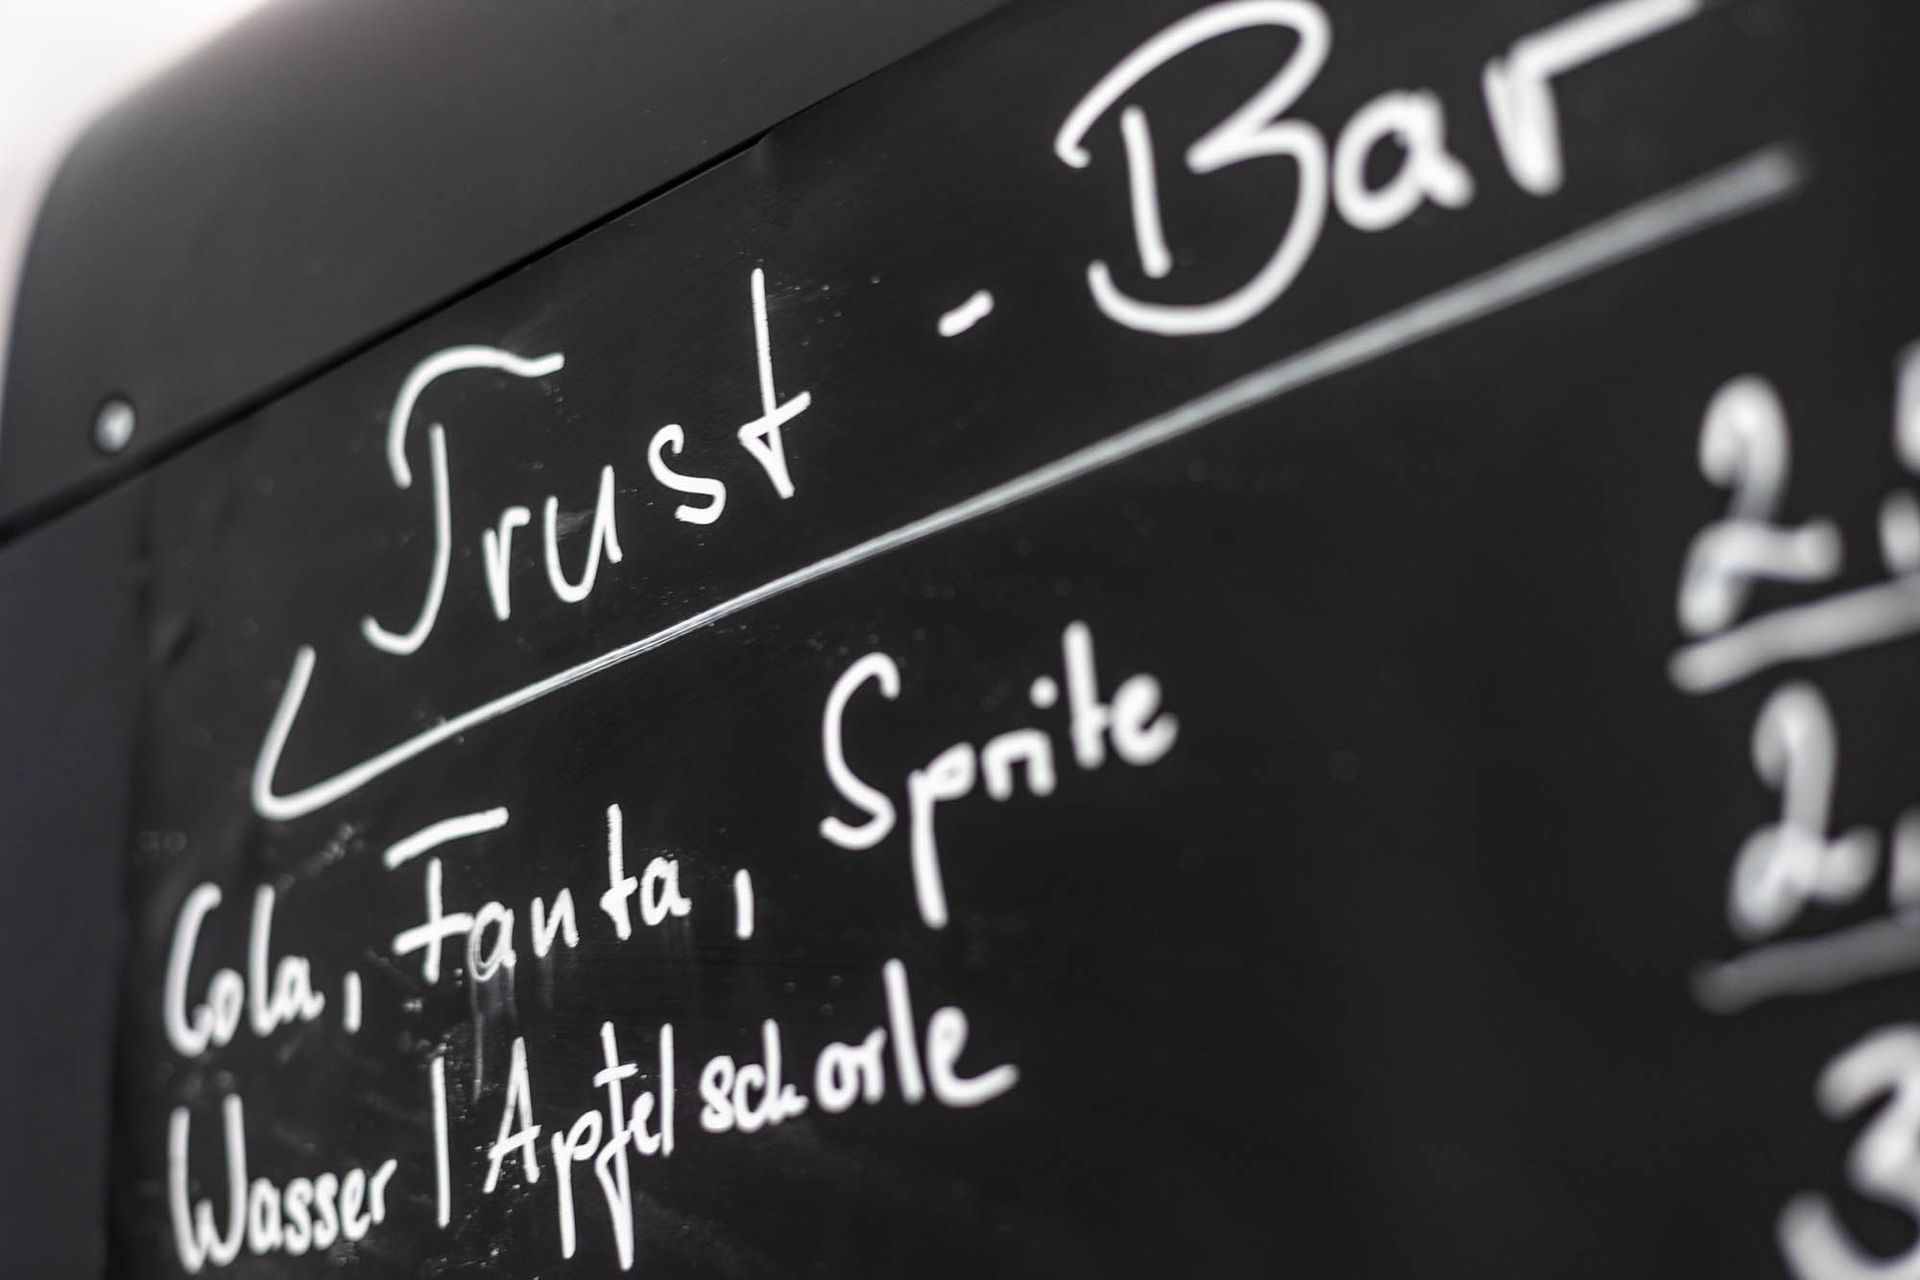 Trust - Bar
Cola, Fanta, Sprite 2,
Wasser / Apfelschorle 2,
3